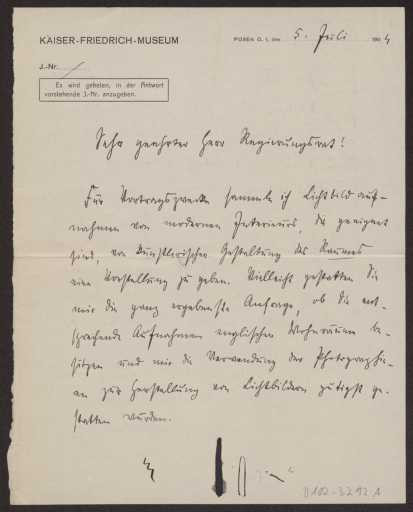 KAISER-FRIEDRICH-MUSEUM
POSEN O. 1, den 5. Juli 1904
J.-Nr.
Es wird gebeten, in der Antwort
vorstehende J.-Nr. anzugeben.
Sehr geehrter Herr Regierungsrat!
Für Vortragszwecke sammle ich Lichtbildauf-
nahmen von modernen Interieurs, die geeignet
sind, von künstlerischer Gestaltung des Raumes
eine Vorstellung zu geben. Vielleicht gestatten Sie
mir die ganz ergebenste Anfrage, ob Sie ent-
sprechende Aufnahmen englischer Wohnräume be-
sitzen und mir die Verwendung der Photographie-
en zur Herstellung von Lichtbildern gütigst ge-
statten würden.
D102-3292,1